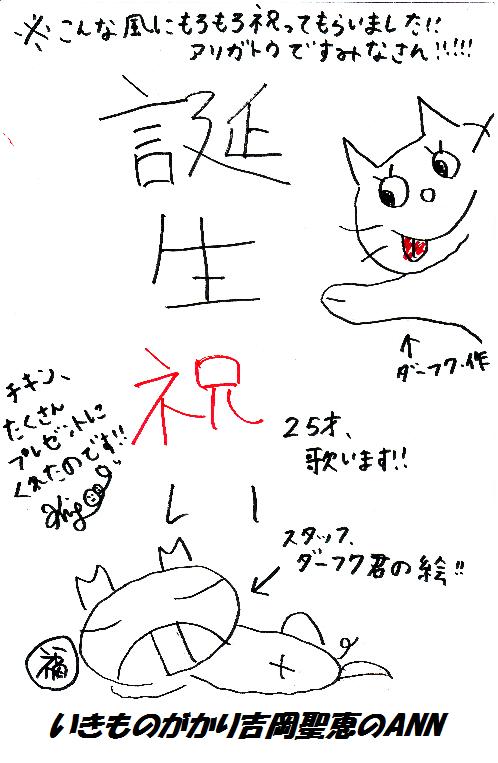 ※こんな風にもろもろ祝ってもらいました!!
アリガトウですみなさん!!!!!
誕
生
祝
い
↑
ダーフク・作
チキン、
たくさん
プレゼントに
くれたのです!!
25才、
歌います!!
スタッフ、
ダーフク君の絵!!
福
いきものがかり吉岡聖恵のANN